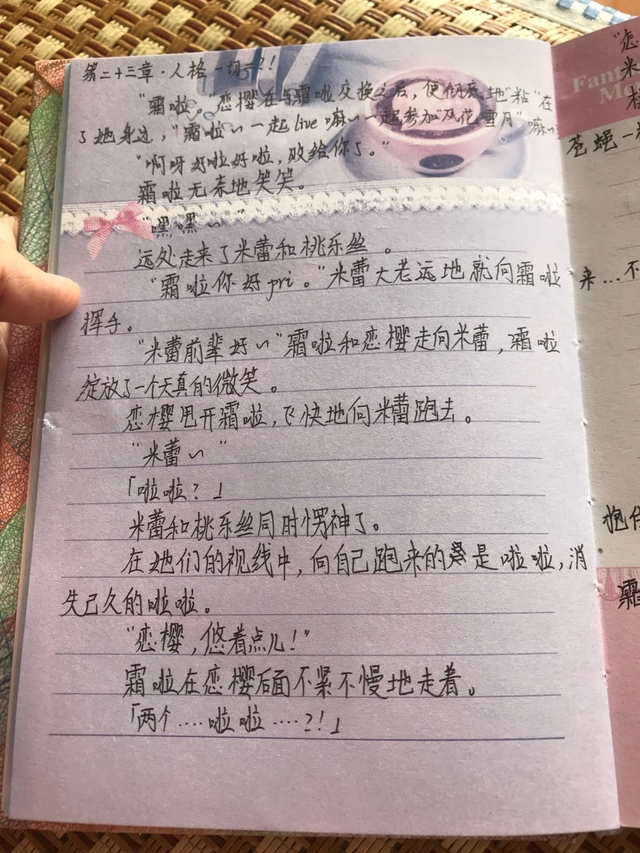 第二十三章·人格一现
"霜啦。"恋樱在与霜啦交换之后,便彻底地"粘"在
了她身边,"霜啦~一起live嘛~一起参加"风花雪月"嘛~
"啊呀好啦好啦,败给你了。"
霜啦无奈地笑笑。
"嘿嘿~"
远处走来了米蕾和桃乐丝。
"霜啦你好pri。"米蕾大老远地就向霜啦
挥手。
"米蕾前辈好~"霜啦和恋樱走向米蕾,霜啦
绽放了一个天真的微笑。
恋樱甩开霜啦,飞快地向米蕾跑去。
"米蕾~"
「啦啦?」
米蕾和桃乐丝同时愣神了。
在她们的视线中,向自己跑来的是啦啦,消
失已久的啦啦。
"恋樱,悠着点儿!"
霜啦在恋樱后面不紧不慢地走着。
「两个····啦啦····?!」
Fant
Mo
"恋
米
苍蝇一
来...不
抱住
霜